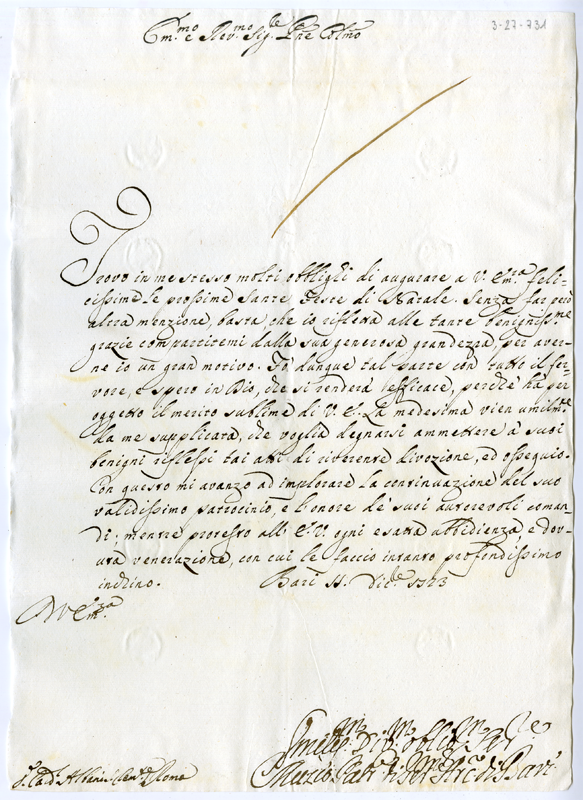 3-27-731
Em.mo e Rev.mo Sig.re P.rne Colmo
Trovo in me stesso molti obblighi di augurare a V. Em.za feli-
cissime le prossime Sante Feste di Natale. Senza far però
altra menzione, basta, che io rifletta alle tante benigniss.me
grazie compartitemi dalla sua generosa grandezza, per aver-
ne io un gran motivo. Fo dunque tal parte con tutto il fer-
vore, e spero in Dio, che si renderà efficace, perchè ha per
oggetto il merito sublime di V. E. La medesima vien umilm.te
da me supplicata, che voglia degnarsi ammettere a' suoi
benigni riflessi tai atti di riverente divozione, ed ossequio.
Con questo mi avanzo ad implorare la continuazione del suo
validissimo patrocinio, e l'onore de' suoi autorevoli coman-
di; mentre protesto all' E.V. ogni esatta obbidienza, e dov-
uta venerazione, con cui le faccio intanto profondissimo
inchino. Bari 11. Dic.e 1723
D V Em.za
Umiliss.mo Div.mo Obblig.mo Ser.re
Muzio Arc. di Bari
S.r Card. Albani Roma